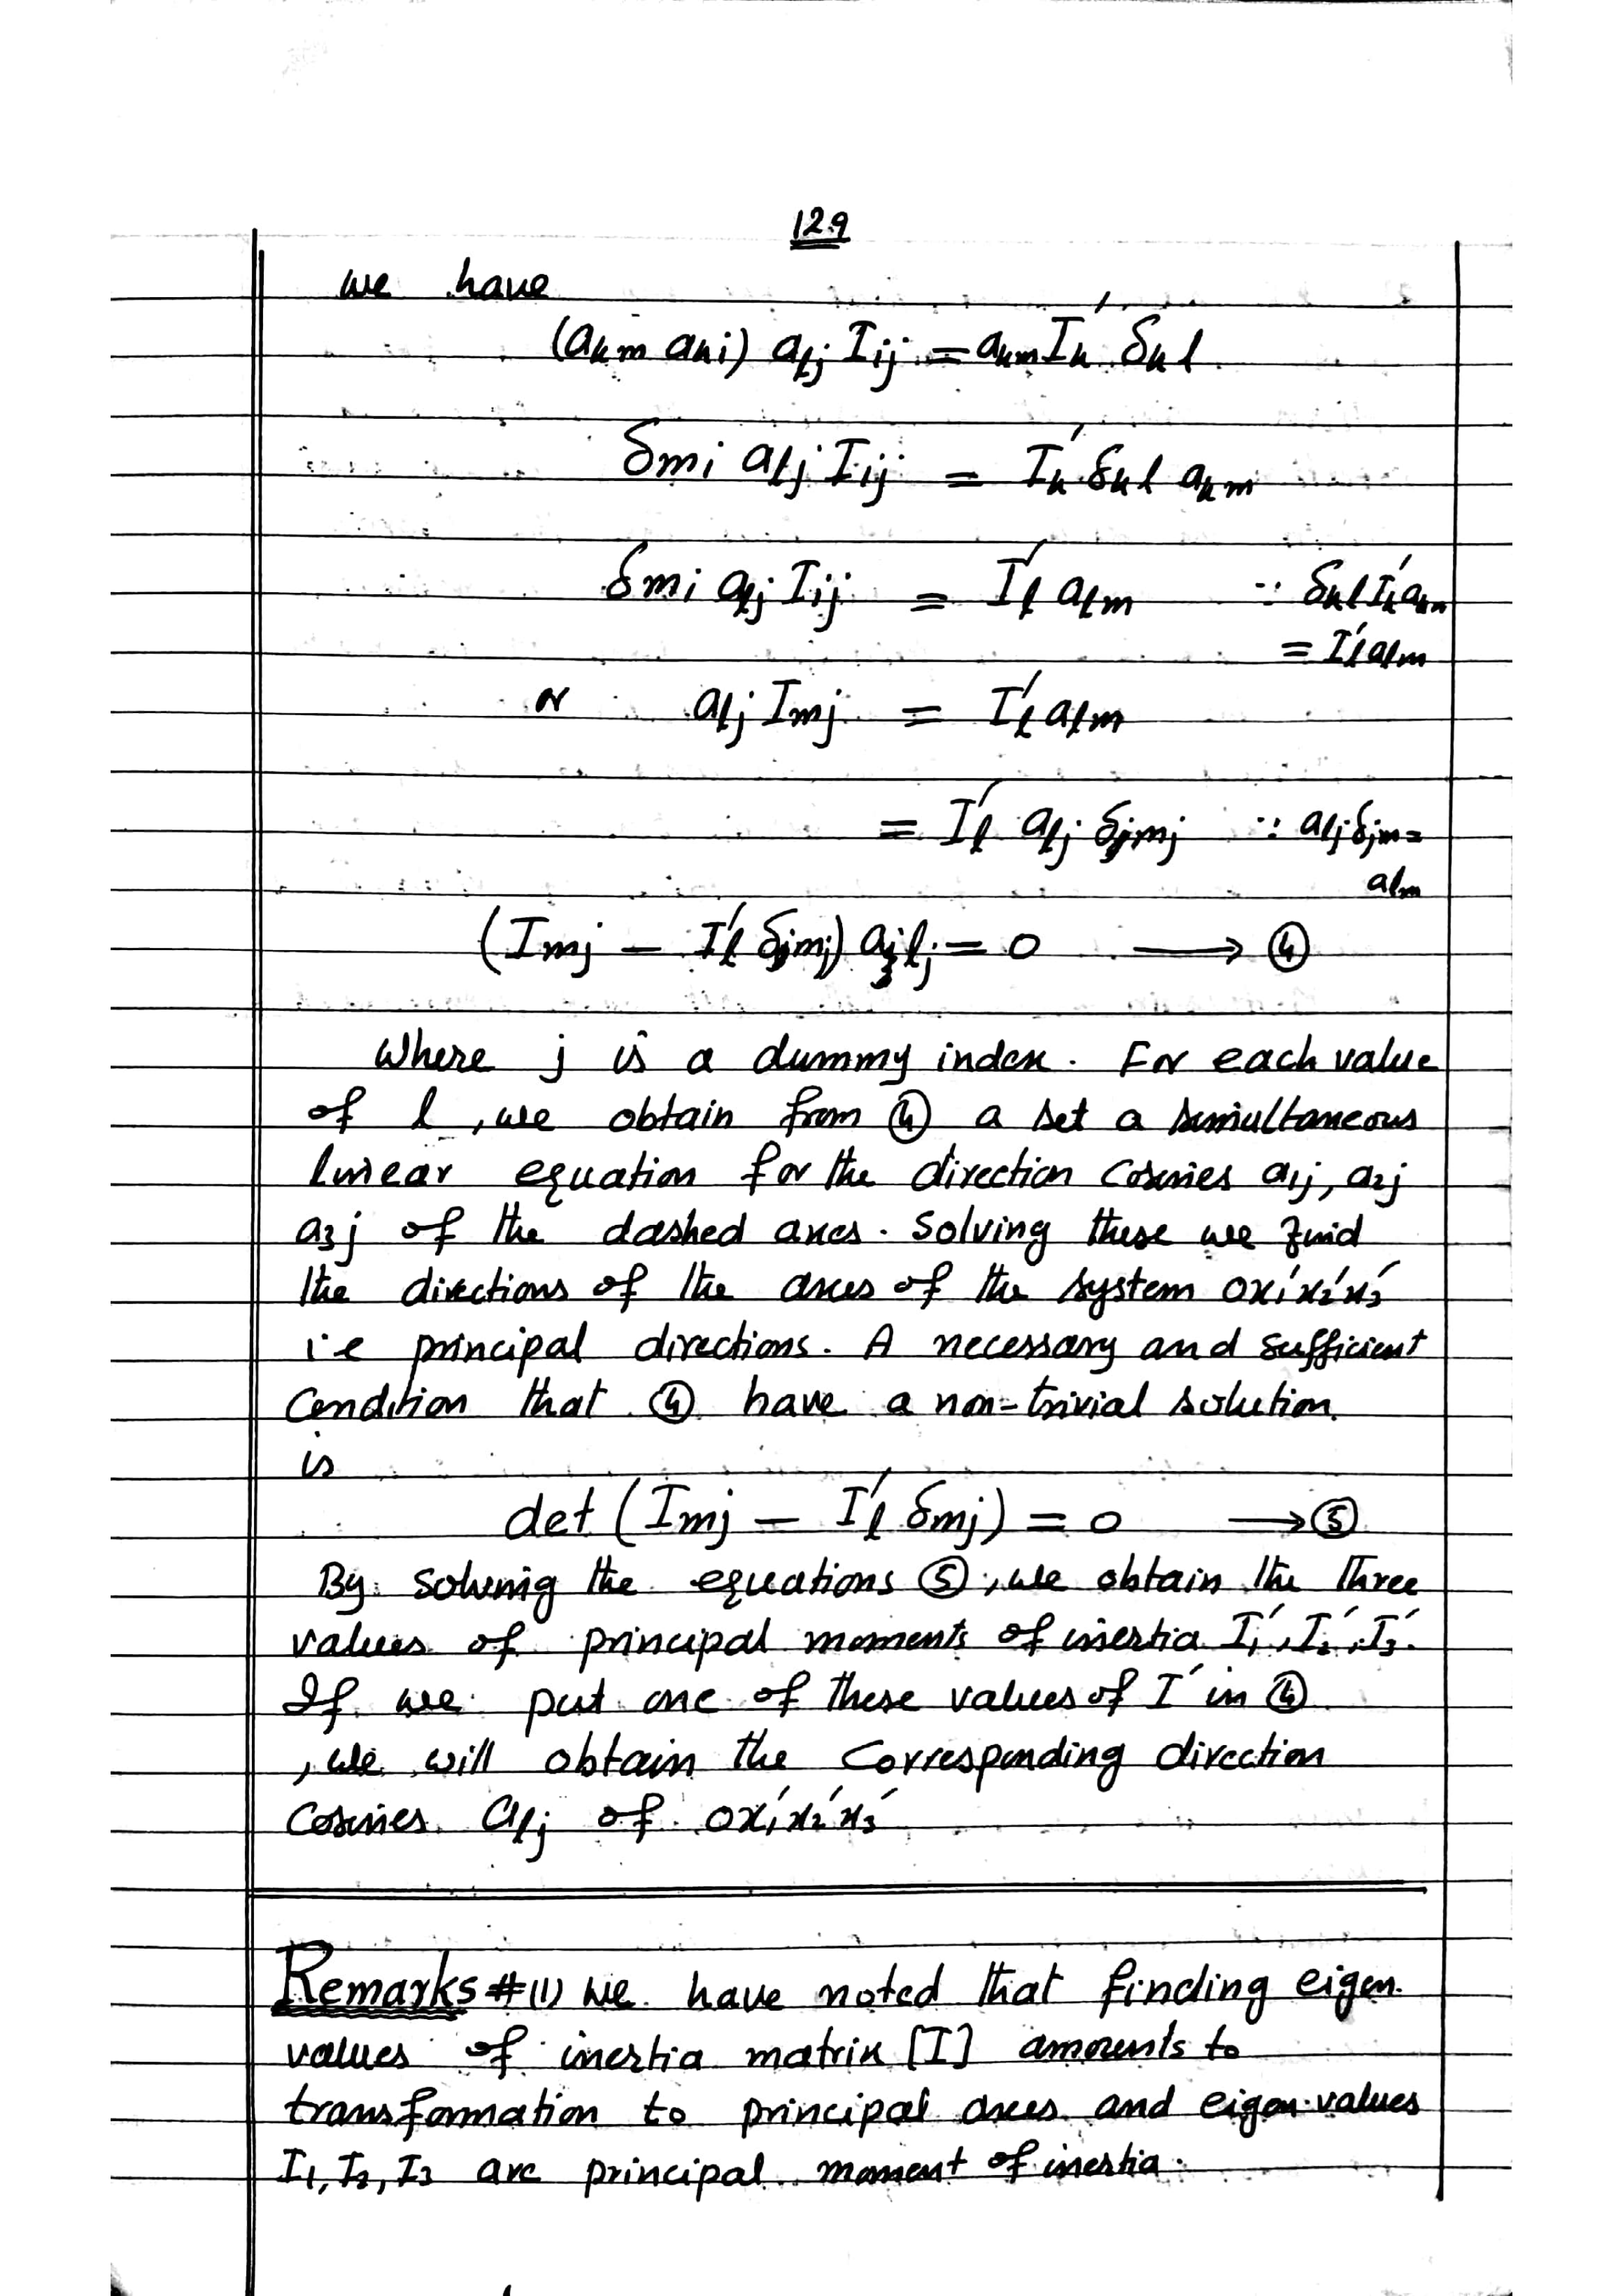 129
we have
(akm aki) alj Iij = akm I'k δkl
δmi alj Iij = I'k δkl akm
δmi alj Iij = I'l alm ∵ δkl I'k akm
= I'l alm
or alj Imj = I'l alm
= I'l alj δmj ∵ alj δjm =
alm
(Imj – I'l δmj) alj = 0 ⟶ ④
Where j is a dummy index. For each value
of l, we obtain from ④ a set a simultaneous
linear equation for the direction Cosines a1j, a2j
a3j of the dashed axes. Solving these we find
the directions of the axes of the system ox1'x2'x3'
i.e principal directions. A necessary and sufficient
Condition that ④ have a non-trivial solution
is
det (Imj – I'l δmj) = 0 ⟶ ⑤
By solving the equations ⑤, we obtain the three
values of principal moments of inertia I1', I2', I3'.
If we put one of these values of I' in ④
, we will obtain the Corresponding direction
Cosines alj of ox1'x2'x3'
Remarks #(1) We have noted that finding eigen
values of inertia matrix [I] amounts to
transformation to principal axes and eigen values
I1, I2, I3 are principal moment of inertia.